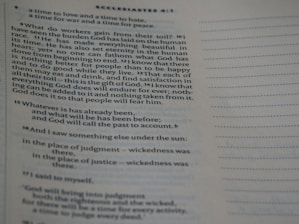 ECCLESIASTES 4:1
a time to love and a time to hate,
a time for war and a time for peace.
What do workers gain from their toil? I
have seen the burden God has laid on the human
race. He has made everything beautiful in
its time. He has also set eternity in the human
heart; yet no one can fathom what God has
done from beginning to end. I know that there
is nothing better for people than to be happy
and to do good while they live. That each of
them may eat and drink, and find satisfaction in
all their toil – this is the gift of God. I know that
everything God does will endure for ever; noth-
ing can be added to it and nothing taken from it.
God does it so that people will fear him.
Whatever is has already been,
and what will be has been before;
and God will call the past to account.
And I saw something else under the sun:
in the place of judgment – wickedness was
there,
in the place of justice – wickedness was
there.
I said to myself,
‘God will bring into judgment
both the righteous and the wicked,
for there will be a time for every activity,
a time to judge every deed.’